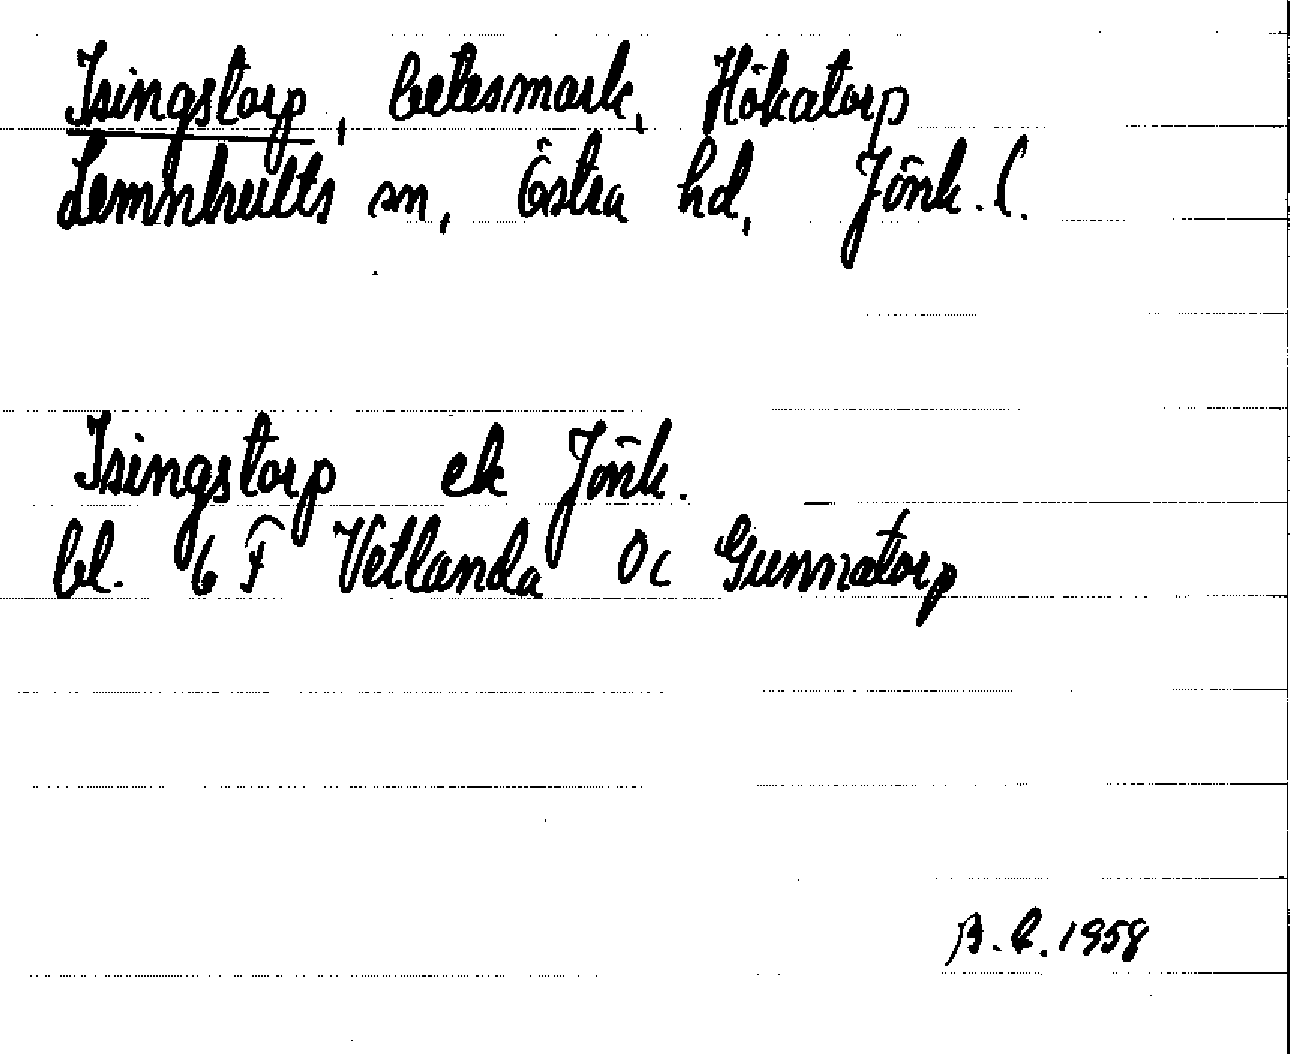 Isingstorp, betesmark, Hökatorp
Lemnhults sn, Östra hd, Jönk. l.
Isingstorp ek Jönk.
bl. 6 F Vetlanda 0c Gunnatorp
B. E. 1958